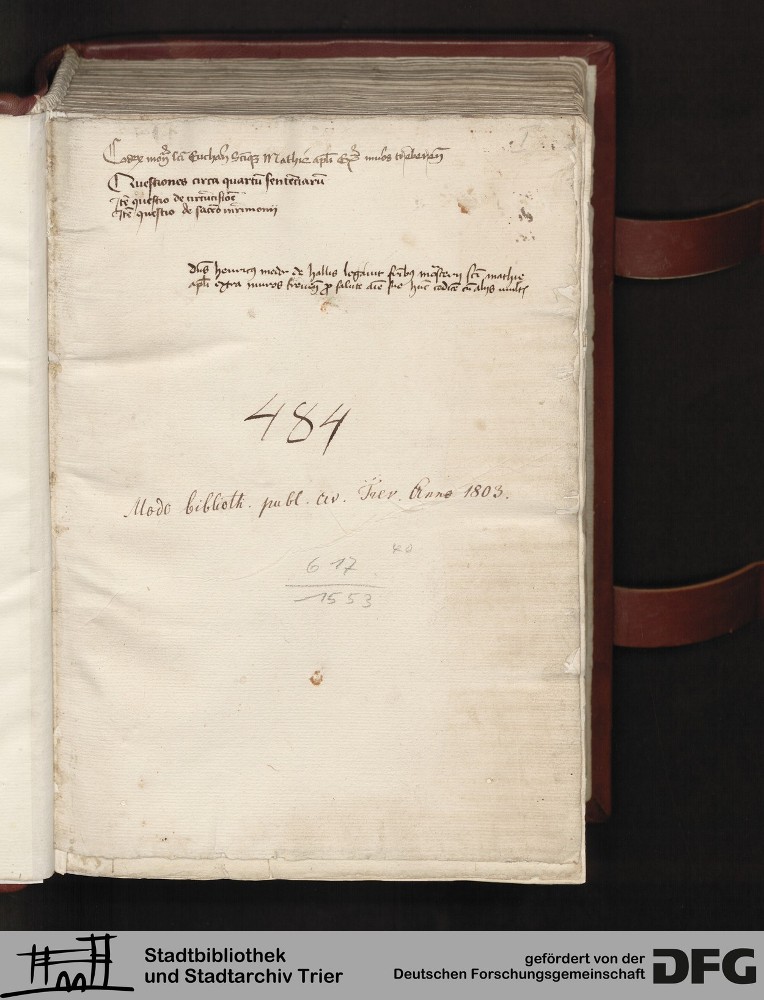 Codex mon sci Eucharii Sciq Mathie apli Ext muros treveren
Questiones circa quartu sententiaru
Ite questio de circucisioe
Ite questio de sacro mrimonii
Dns henricus de hallis legavit frbus mosterii sci mathie
apli extra muros treven p salute aie sue hunc codice cu alijs multis
484
Modo biblioth. publ. civ. Trev. Anno 1803.
617 40
1553
Stadtbibliothek
und Stadtarchiv Trier
gefördert von der
Deutschen Forschungsgemeinschaft
DFG